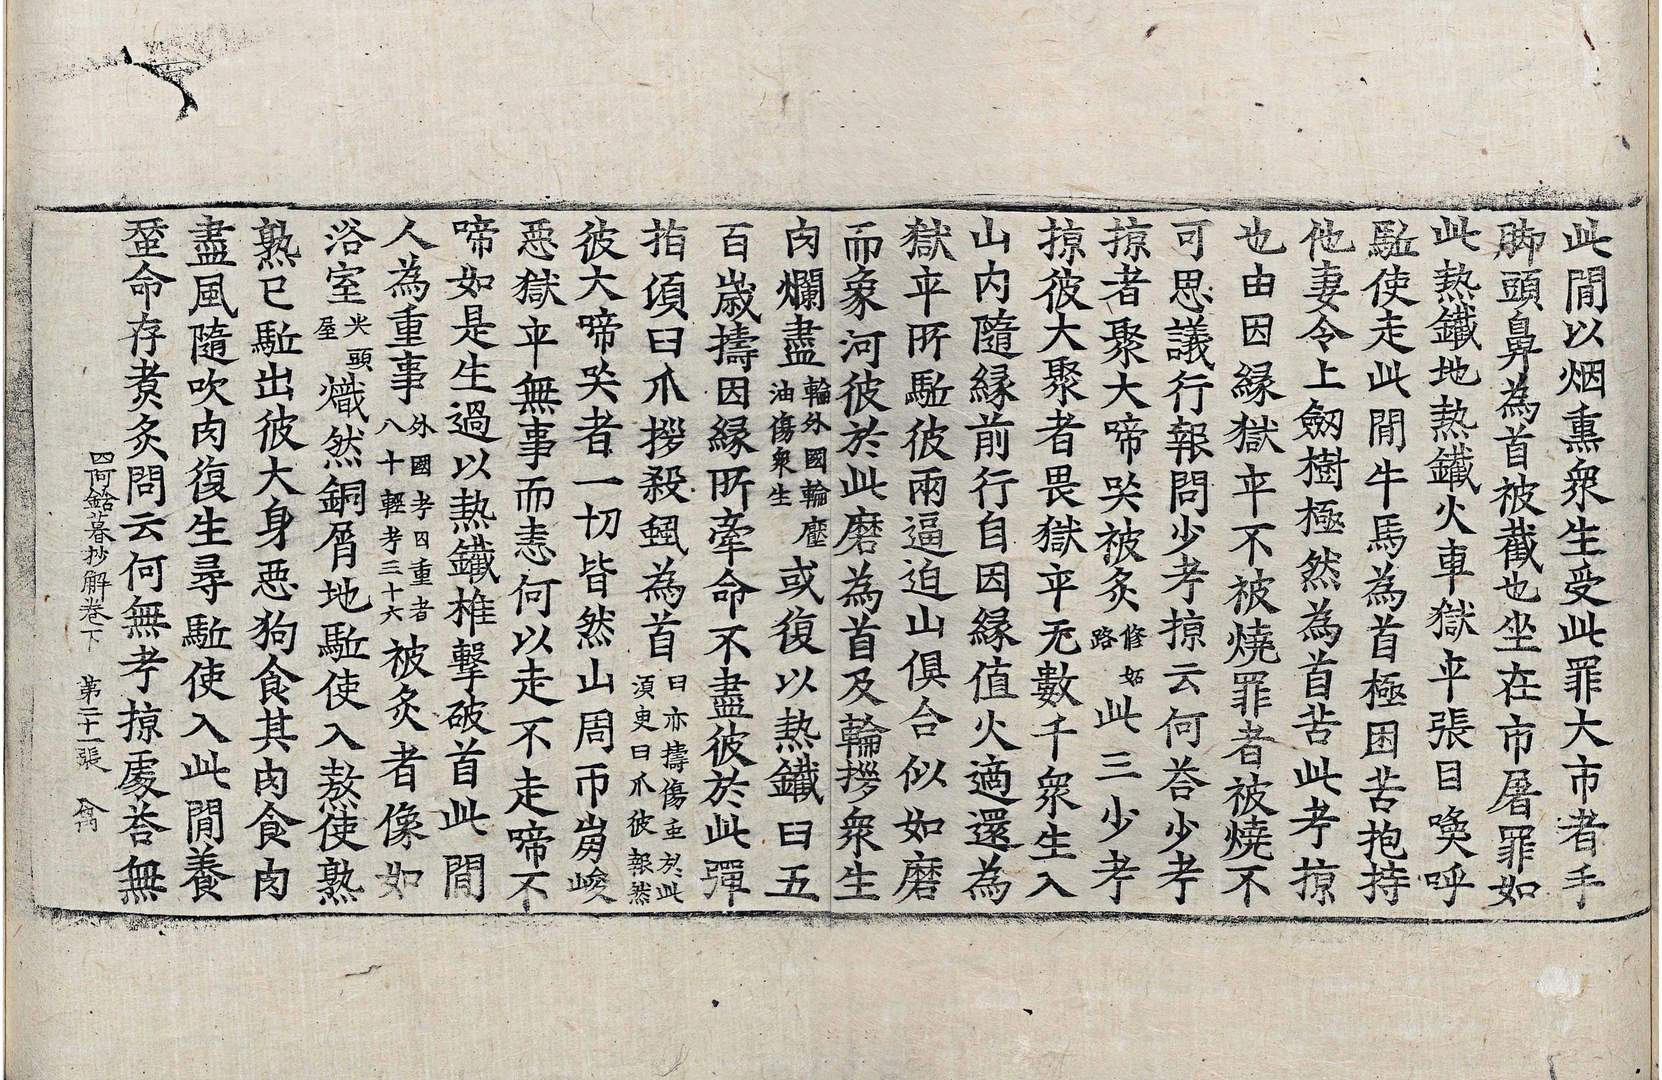 此閒以烟熏衆生受此罪大市者手
脚頭鼻為首被截也坐在市屠罪如
此熱鐵地熱鐵火車獄卒張目喚呼
駈使走此閒牛馬為首極困苦抱持
他妻令上劒樹極然為首苦此考掠
也由因緣獄卒不被燒罪者被燒不
可思議行報問少考掠云何荅少考
掠者聚大啼哭被炙修妬路此三少考
掠彼大聚者畏獄卒无數千衆生入
山内隨緣前行自因緣值火適還為
獄卒所駈彼兩逼迫山俱合似如磨
而象河彼於此磨為首及輪拶衆生
肉爛盡輪外國輪壓油傷衆生或復以熱鐵臼五
百歲擣因緣所牽命不盡彼於此彈
指湏臼爪拶殺䖝為首臼亦擣傷垂於此湏更臼爪彼報然
彼大啼哭者一切皆然山周帀嵬峻
惡獄卒無事而恚何以走不走啼不
啼如是生過以熱鐵椎擊破首此閒
人為重事外國考四重者八十輕考三十六被炙者像如
浴室光頭屋熾然銅屑地駈使入熬使熟
熟已駈出彼大身惡狗食其肉食肉
盡風隨吹肉復生尋駈使入此閒養
蠶命存煑炙問云何無考掠處荅無
四阿鋡暮抄解卷下　第二十一張